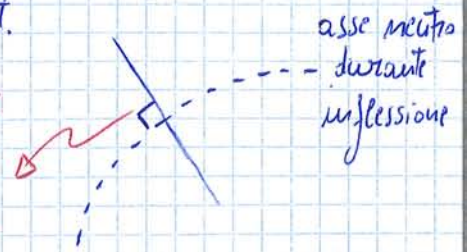 T.
asse neutro
durante
inflessione